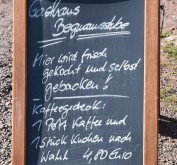 Gasthaus
Bergmannsstube
Hier wird frisch
gekocht und selbst
gebacken!
Kaffeegedeck:
1 Pott Kaffee und
1 Stück Kuchen nach
Wahl 4,80 Euro